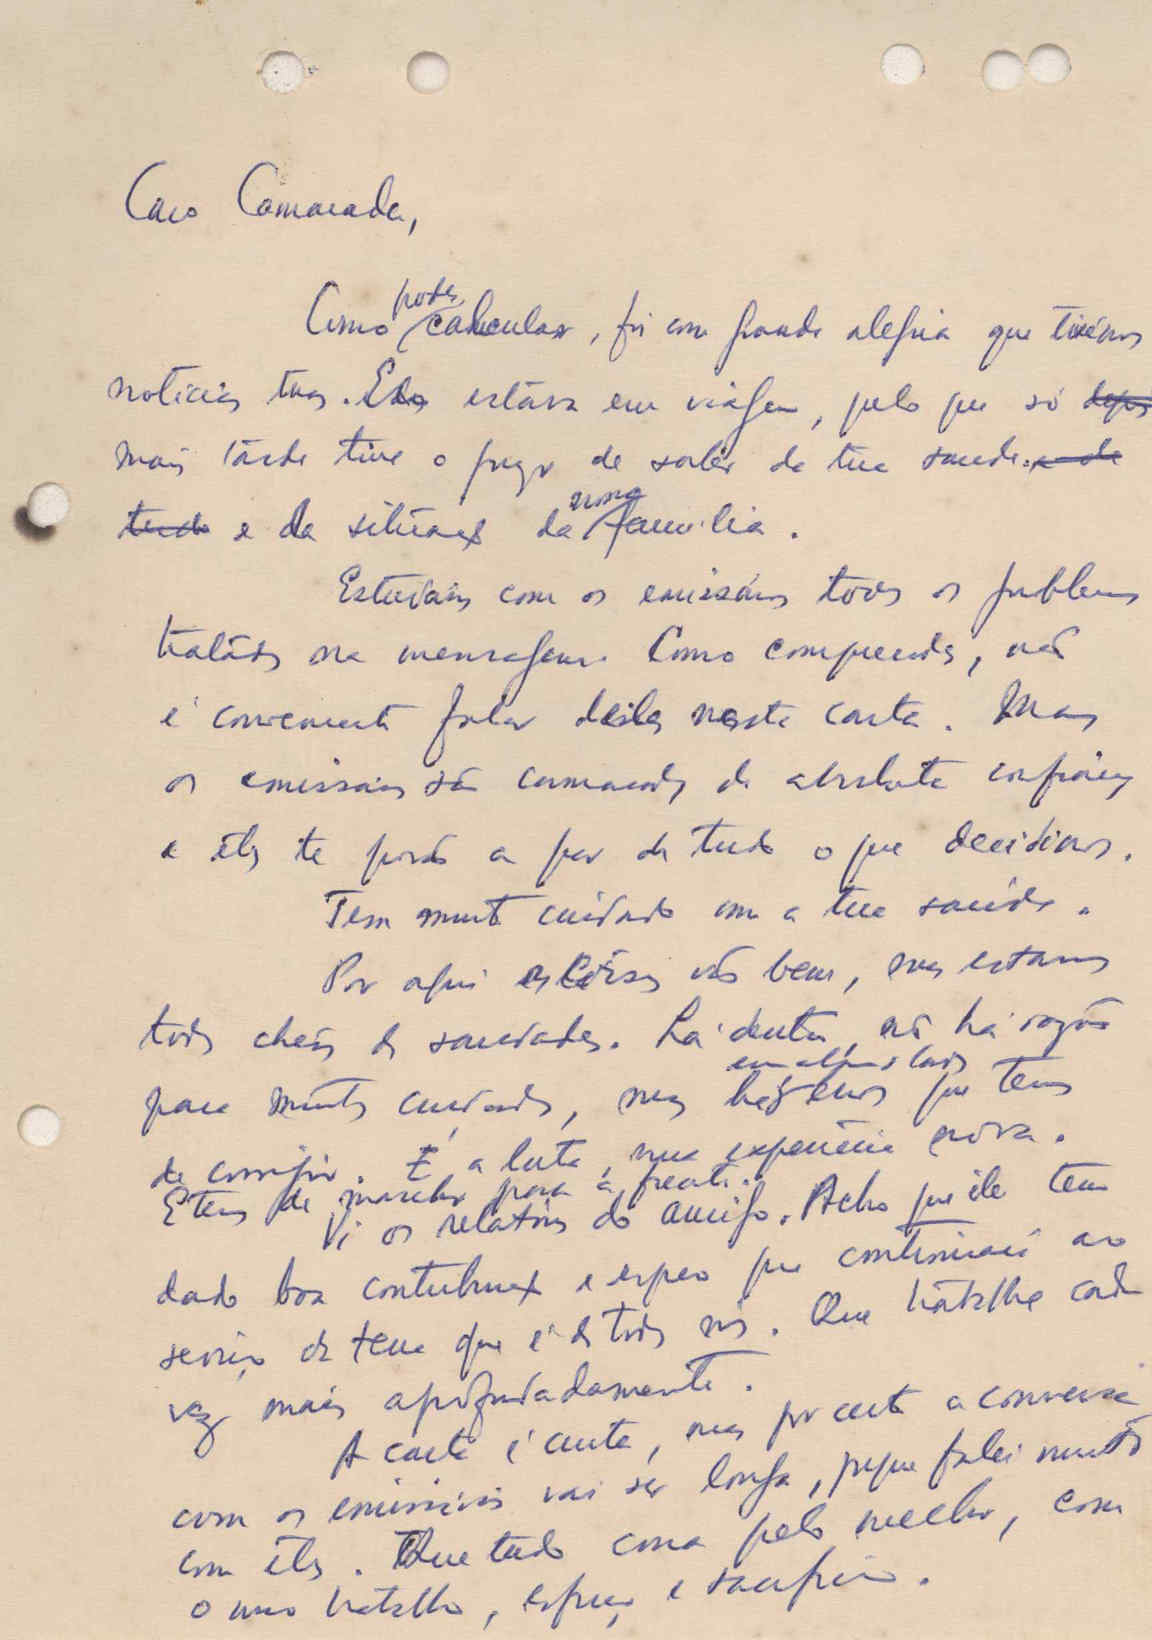 Caro Camarada,
Como podes calcular, foi com grande alegria que tivémos
notícias tuas. Eu estava em viagem, pelo que só depois
mais tarde tive o prazer de saber da tua saude. e de
tudo e da situação da nossa família.
Estudámos com os emissários todos os problemas
tratados na mensagem. Como compreendes, não
é conveniente falar deles nesta carta. Mas
os emissários são camaradas de absoluta confiança
e êles te porão a par de tudo o que decidimos.
Tem muito cuidado com a tua saúde.
Por aqui as coisas vão bem, mas estamos
todos cheios de saudades. Lá dentro, não há razão
para muitos cuidados, mas há em alguns lados que temos
de corrigir. É a luta, uma experiência nova.
E temos de marchar para a frente.
Vi os relatórios do amigo. Acho que ele tem
dado boa contribuição e espero que continuará ao
serviço da terra que é de todos nós. Que trabalhe cada
vez mais aprofundadamente.
A carta é curta, mas por certo a conversa
com os emissários vai ser longa, porque falei muito
com êles. Que tudo corra pelo melhor, com
o nosso trabalho, esforço e sacrifício.